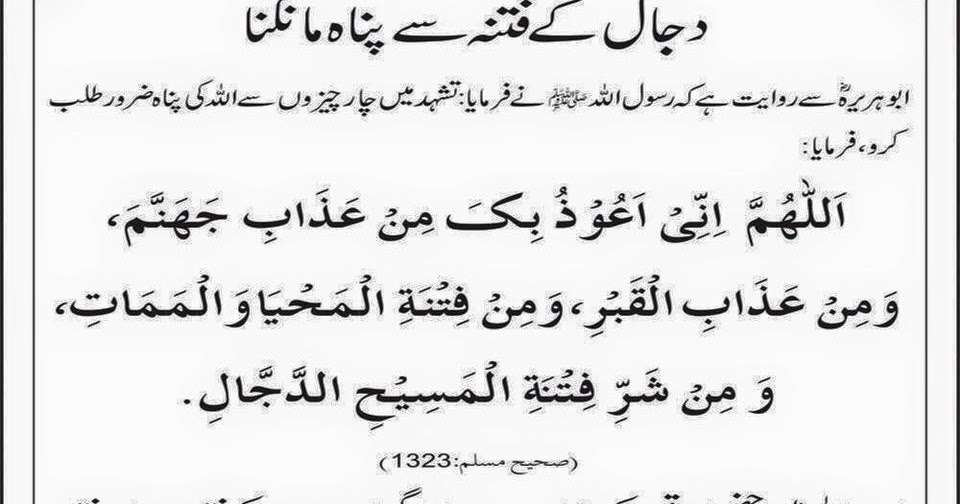 دجال کے فتنہ سے پناہ مانگنا
ابوہریرہؓ سے روایت ہے کہ رسول اللہ ﷺ نے فرمایا: تشہد میں چار چیزوں سے اللہ کی پناہ ضرور طلب
کرو، فرمایا:
اَللّٰهُمَّ اِنِّیْ اَعُوْذُ بِکَ مِنْ عَذَابِ جَهَنَّمَ،
وَ مِنْ عَذَابِ الْقَبْرِ، وَ مِنْ فِتْنَةِ الْمَحْيَا وَ الْمَمَاتِ،
وَ مِنْ شَرِّ فِتْنَةِ الْمَسِيْحِ الدَّجَّالِ.
(صحیح مسلم:1323)